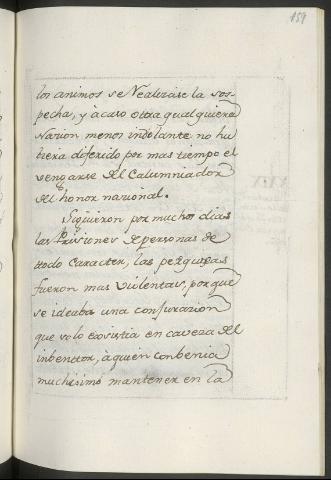 159
los animos se Realizase la sos-
pecha, y àcaso otra qualquiera
Nacion menos indolante no hu
biera diferido por mas tiempo el
vengarse del Calumniador
del honor nacional.
Siguieron por muchos dias
las Prisiones de personas de
todo Caracter, las pezquisas
fueron mas violentas, porque
se ideaba una conjuracion
que solo existia en caveza del
inbentor, à quien conbenia
muchisimo mantener en la